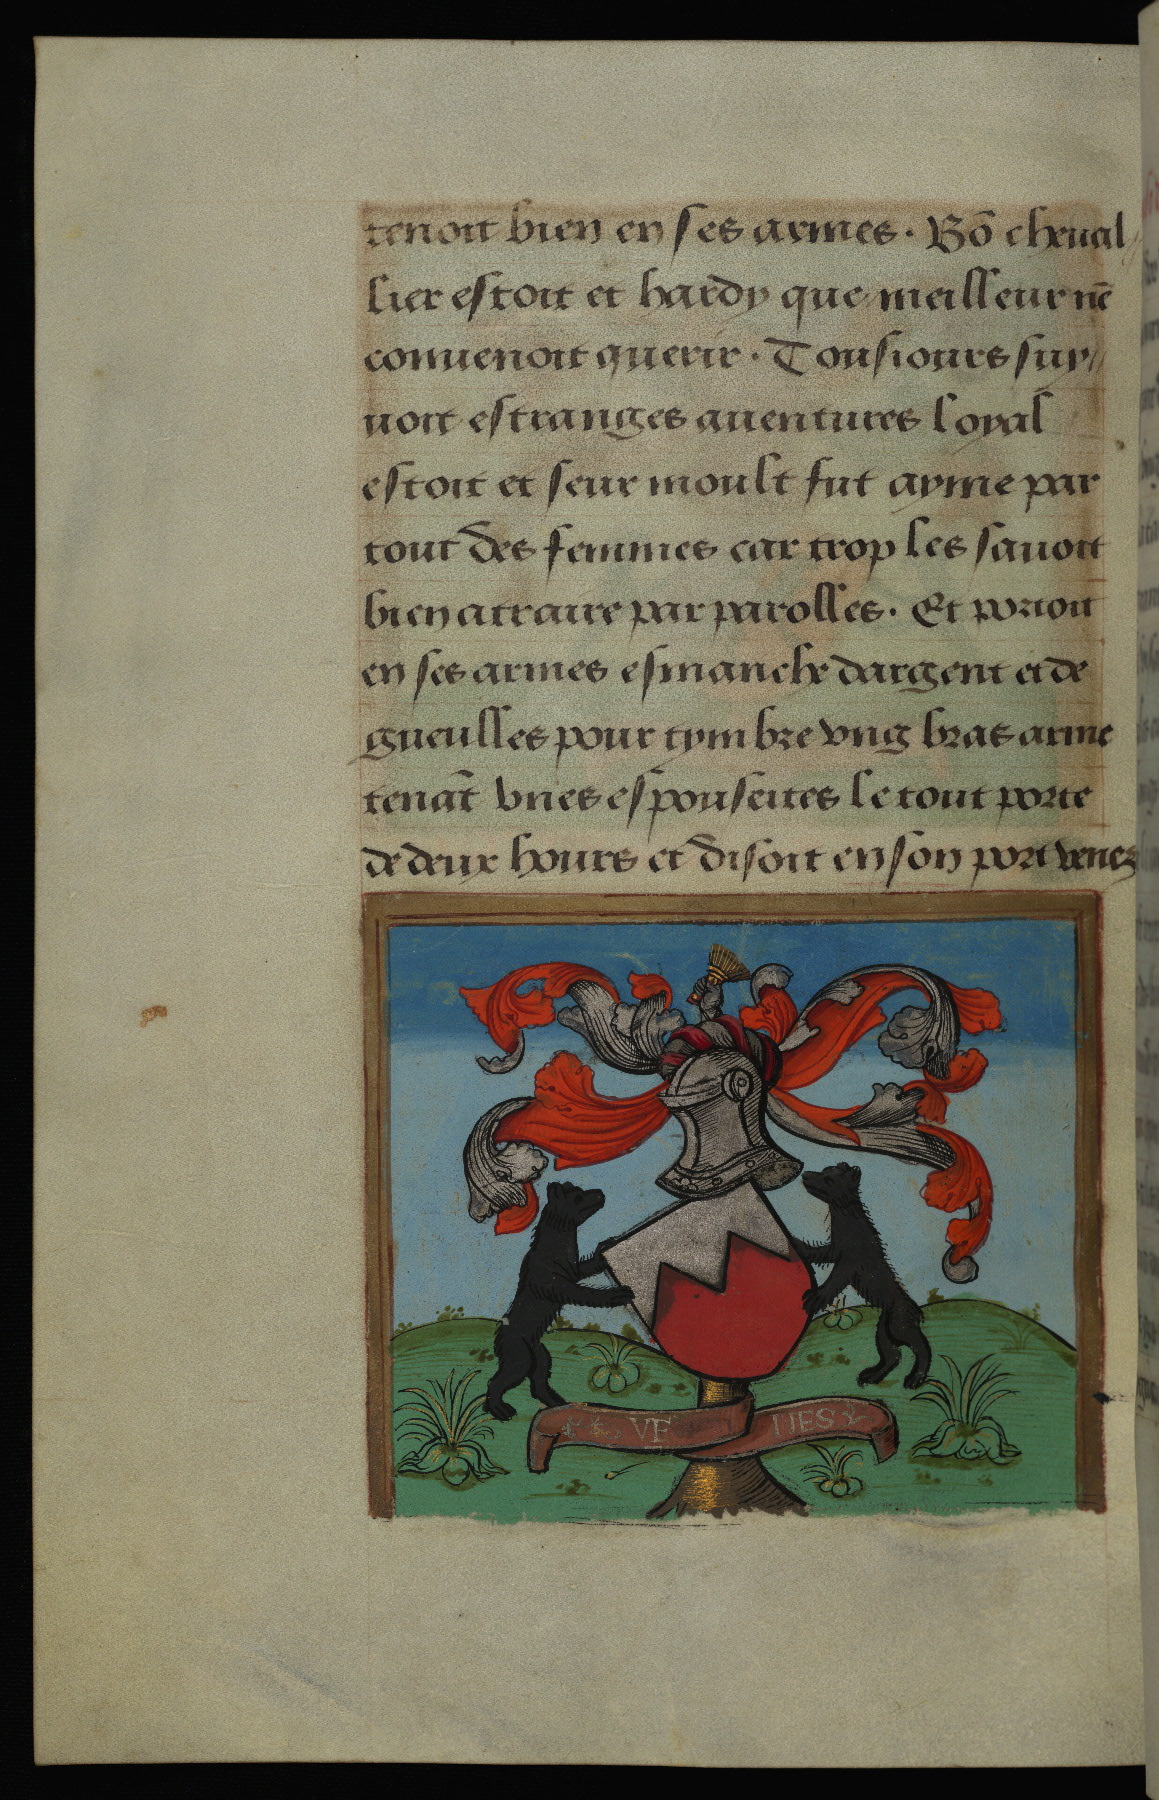 tenoit bien en ses armes. Bō cheual
lier estoit et hardy que meilleur nē
conuenoit querir. Tousiours suy
uoit estranges auentures loyal
estoit et seur moult fut ayme par
tout des femmes car trop les sauoit
bien atraire par parolles. Et portoit
en ses armes esmanche dargent et de
gueulles pour tymbre vng bras arme
tenāt vnes espousettes le tout porte
de deux hours et disoit en son port venes
VE NES